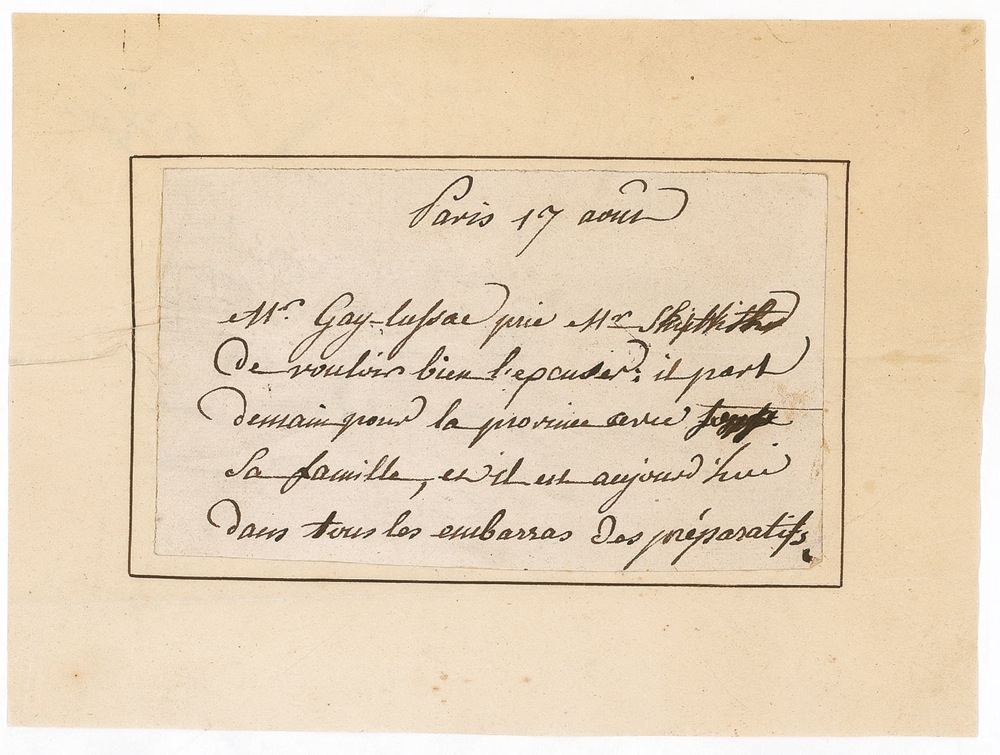 Paris 17 août
Mr. Gay-lussac prie Mr
de vouloir bien l'excuser; il part
demain pour la province avec
sa famille, et il est aujourd'hui
dans tous les embarras des préparatifs.